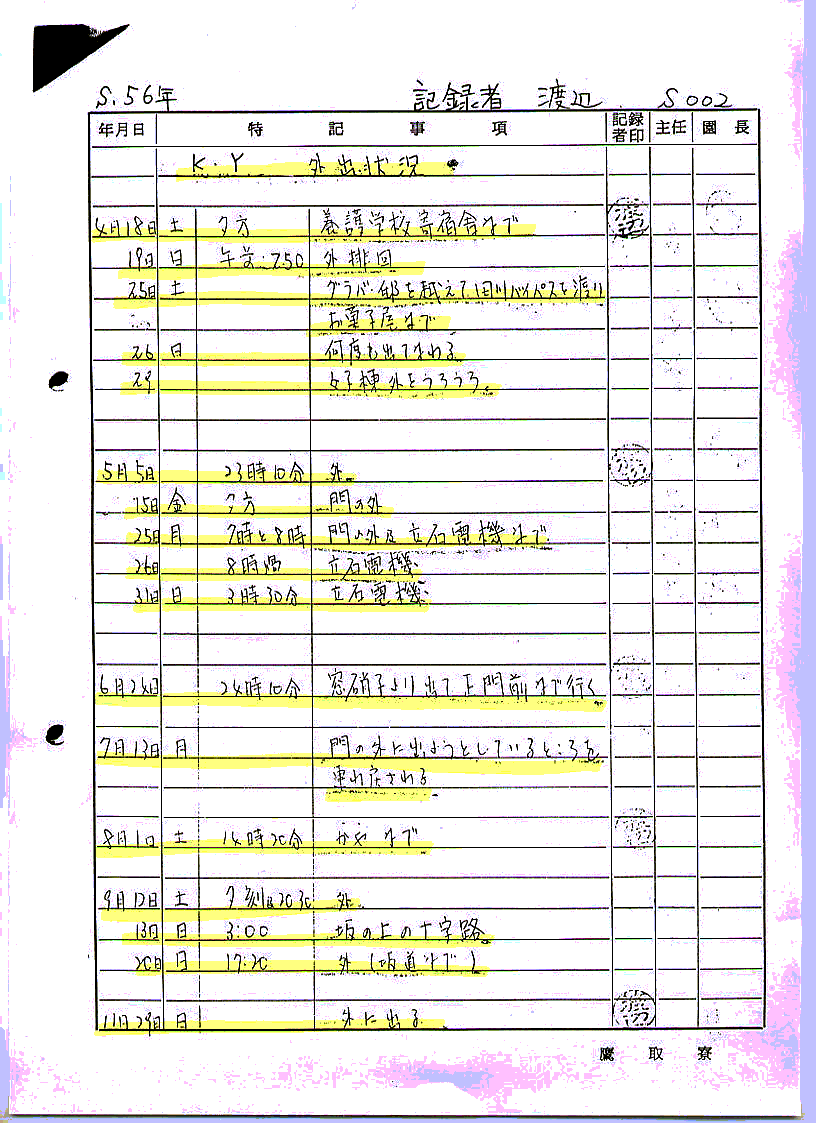 S.56年 記録者 渡辺 S002
年月日 特記事項 記録者印 主任 園長
K・Y 外出状況
4月18日 土 夕方 養護学校寄宿舎まで
19日 日 午前7.50 外徘回
25日 土 グラバー邸を越えて旧川バイパスを渡り
お菓子屋まで
26 日 何度も出てまわる
29 女子棟外をうろうろ。
5月5日 23時10分 外
15日 金 夕方 門の外
25日 月 7時と8時 門の外及立石電機まで
26日 8時過 立石電機
31日 日 3時30分 立石電機
6月24日 24時10分 窓硝子より出て正門前まで行く
7月13日 月 門の外に出ようとしているところを
連れ戻される
8月1日 土 14時20分 まで
9月12日 土 夕刻及2030 外
13日 日 3:00 坂の上の十字路
20日 日 17.20 外(坂道まで)
11月29日 日 外に出る
鷹取寮